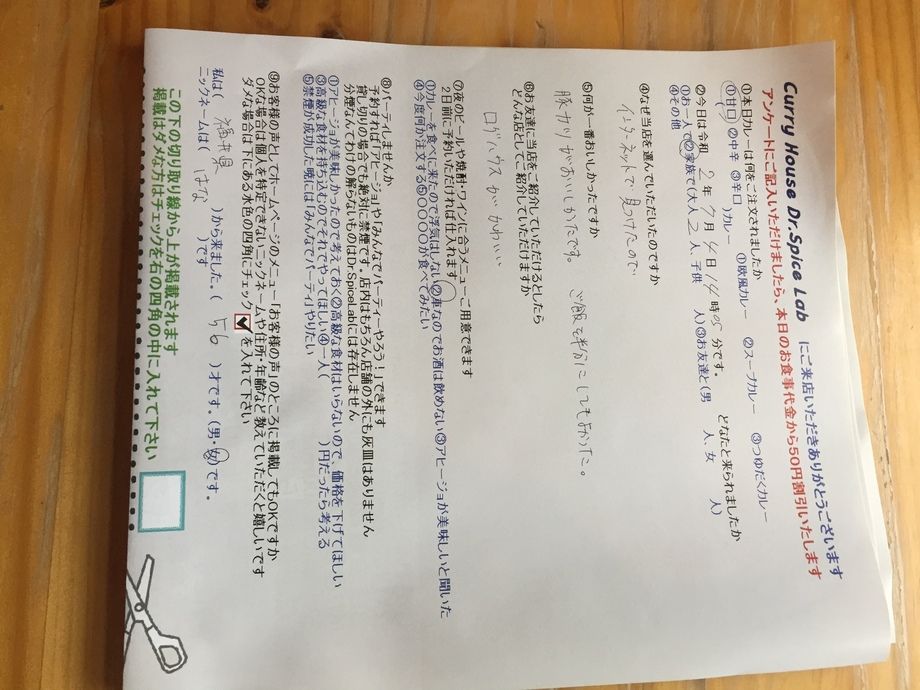 Curry House Dr.Spice Lab にご来店いただきありがとうございます
アンケートにご記入いただけましたら、本日のお食事代金から50円割引いたします
①本日カレーは何をご注文されましたか ①欧風カレー ②スープカレー ③つゆだくカレー
①甘口 ②中辛 ③辛口 ( )カレー
②今日は令和 2年 7月 4日 14時05分です。 どなたと来られましたか
①お一人で②家族で(大人 2人、子供 人)③お友達と(男 人、女 人)
④その他
④なぜ当店を選んでいただいたのですか
インターネットで見つけたので
⑤何が一番おいしかったですか
豚カツがおいしかたです。 ご飯を半分にしてもよかった。
⑥お友達に当店をご紹介していただけるとしたら
どんな店としてご紹介していただけますか
ログハウスがかわいい
⑦夜のビールや焼酎・ワインに合うメニューご用意できます
2日前に予約いただければ仕入れます
①カレーを食べに来たので浮気はしない②車なのでお酒は飲めない③アヒージョが美味しいと聞いた
④今度何か注文する⑤〇〇〇〇が食べてみたい
⑧パーティしませんか
予約すれば「アヒージョ」や「みんなでパーティーやろう！」できます
貸し切りの場合でも絶対に禁煙です。店内はもちろん店舗の外にも灰皿はありません
分煙なんてわけの解らないものはDr.SpiceLabには存在しません
①アヒージョが美味しかったので考えておく②高級な食材はいらないので、価格を下げてほしい
③高級な食材を持ち込むのでそれでやってほしい④一人( )円だったら考える
⑤禁煙が成功した暁には「みんなでパーティ」やりたい
⑨お客様の声としてホームページのメニュー「お客様の声」のところに掲載してもOKですか
OKな場合は個人を特定できないニックネームや住所・年齢など教えていただくと嬉しいです
ダメな場合は下にある水色の四角にチェック☑を入れて下さい
私は( 福井県 )から来ました。( 56 )才です。(男・女)です。
ニックネームは( はな )です
この下の切り取り線から上が掲載されます
掲載はダメな方はチェックを右の四角の中に入れて下さい